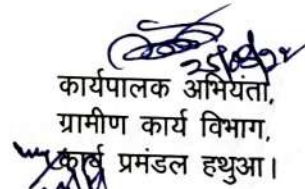 25/09/24
कार्यपालक अभियंता,
ग्रामीण कार्य विभाग,
कार्य प्रमंडल हथुआ।